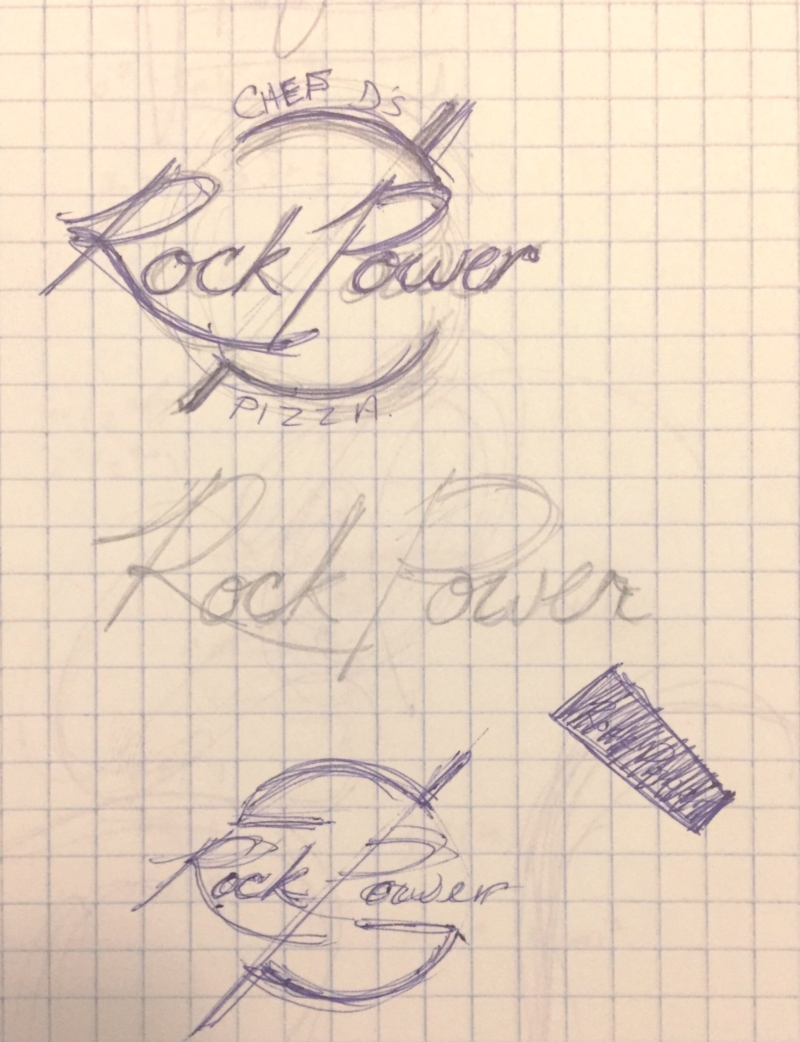 CHEF D's
Rock Power
PIZZA.
Rock Power
Rock Power